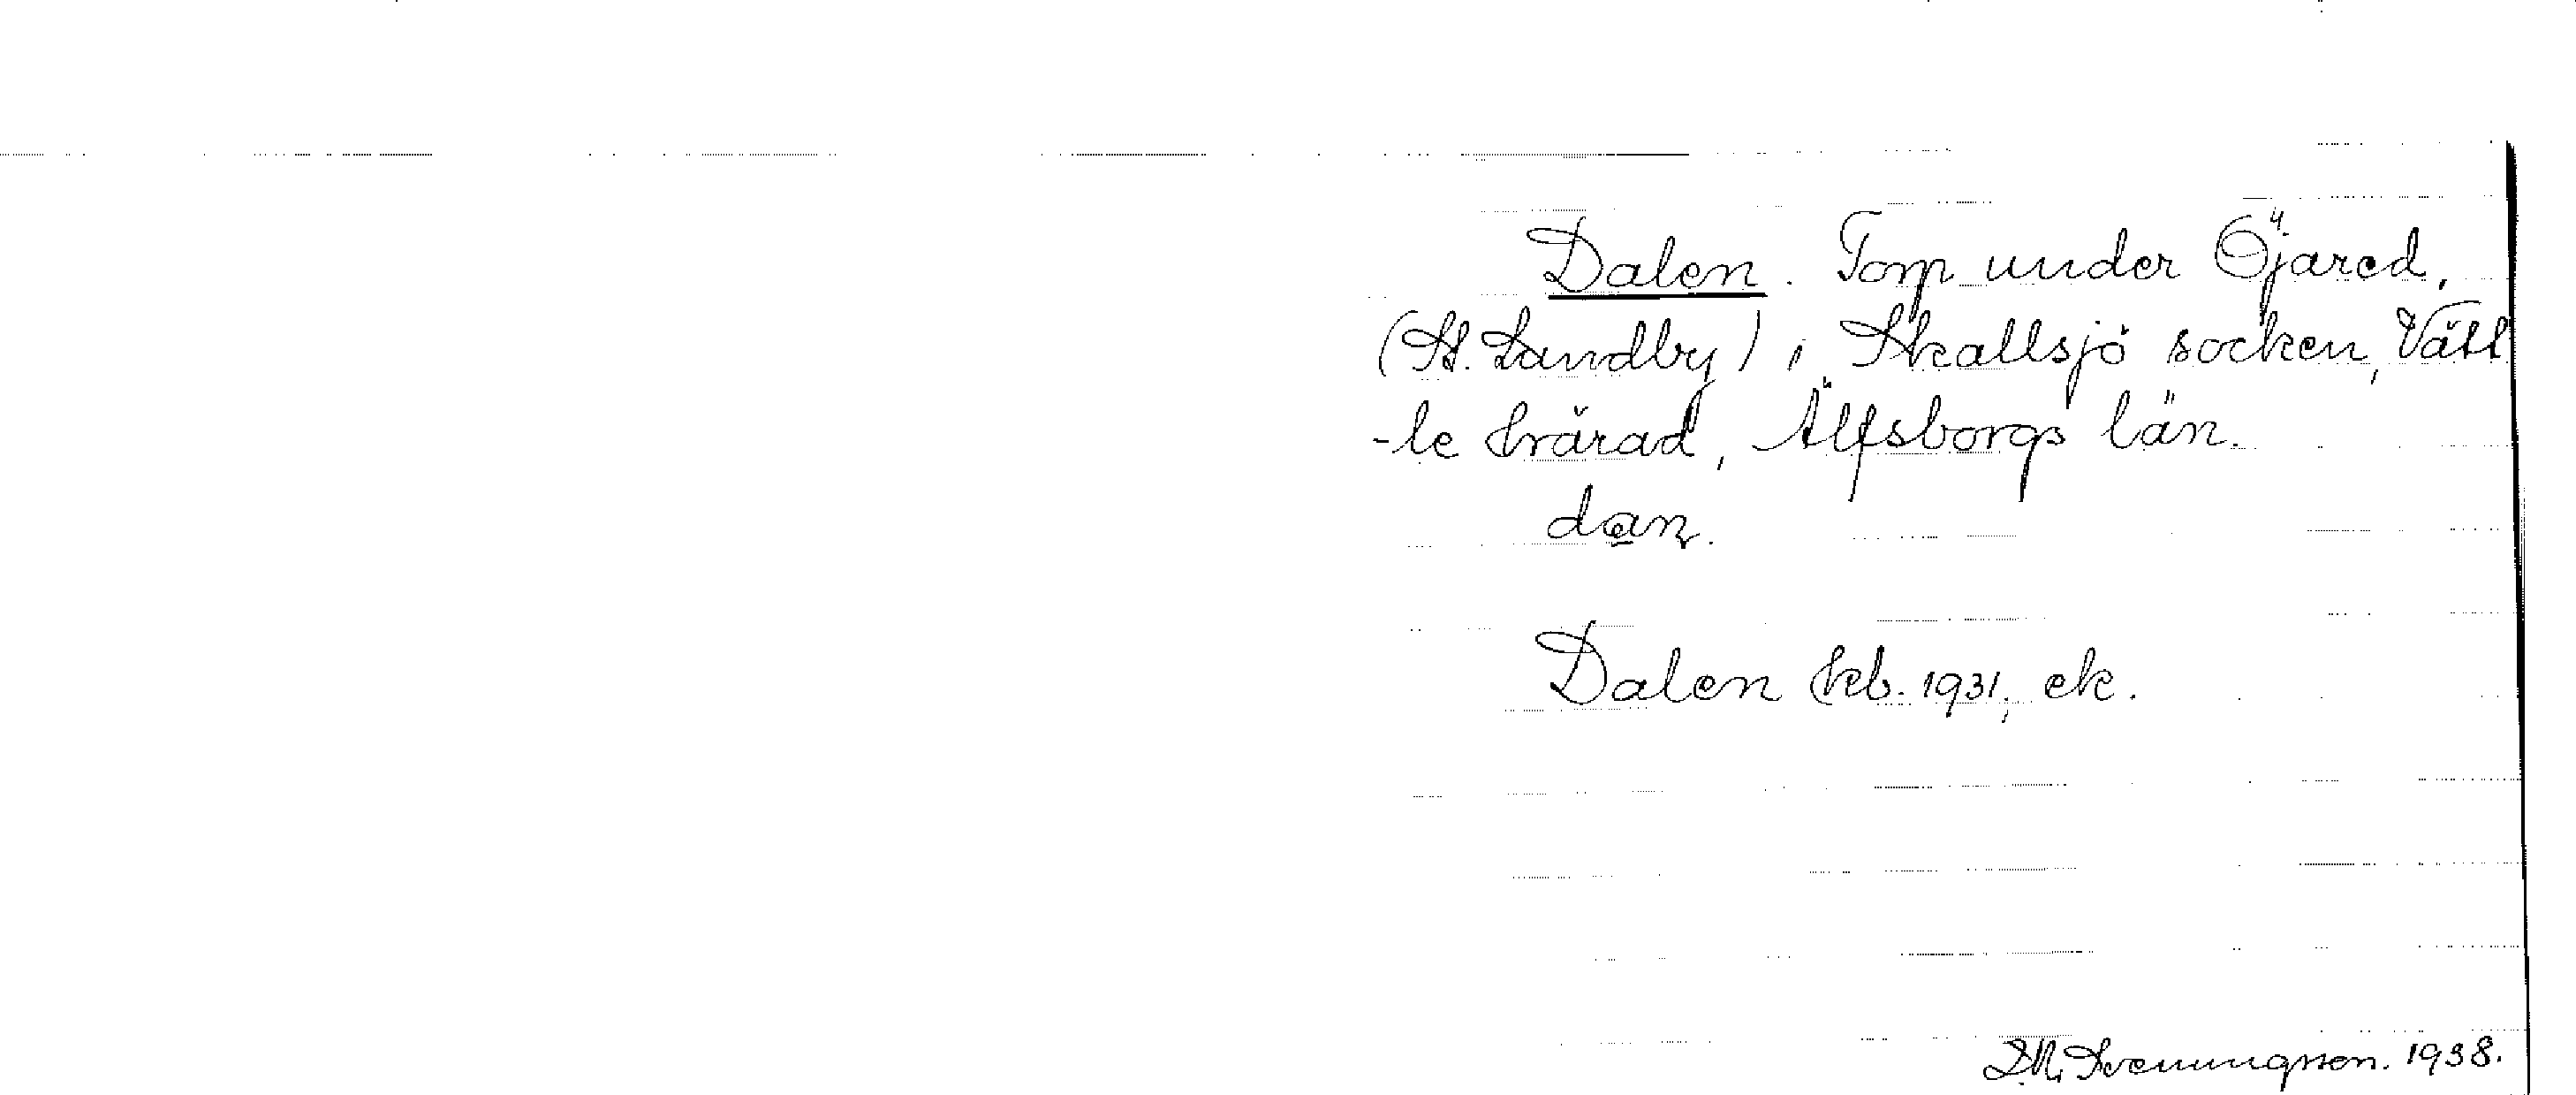 Dalen. Torp under Öjared,
(St. Lundby) i Skallsjö socken, Vätt
-le härad, Älfsborgs län.
dan.
Dalen kb. 1931, ek.
Svenungsson. 1938.